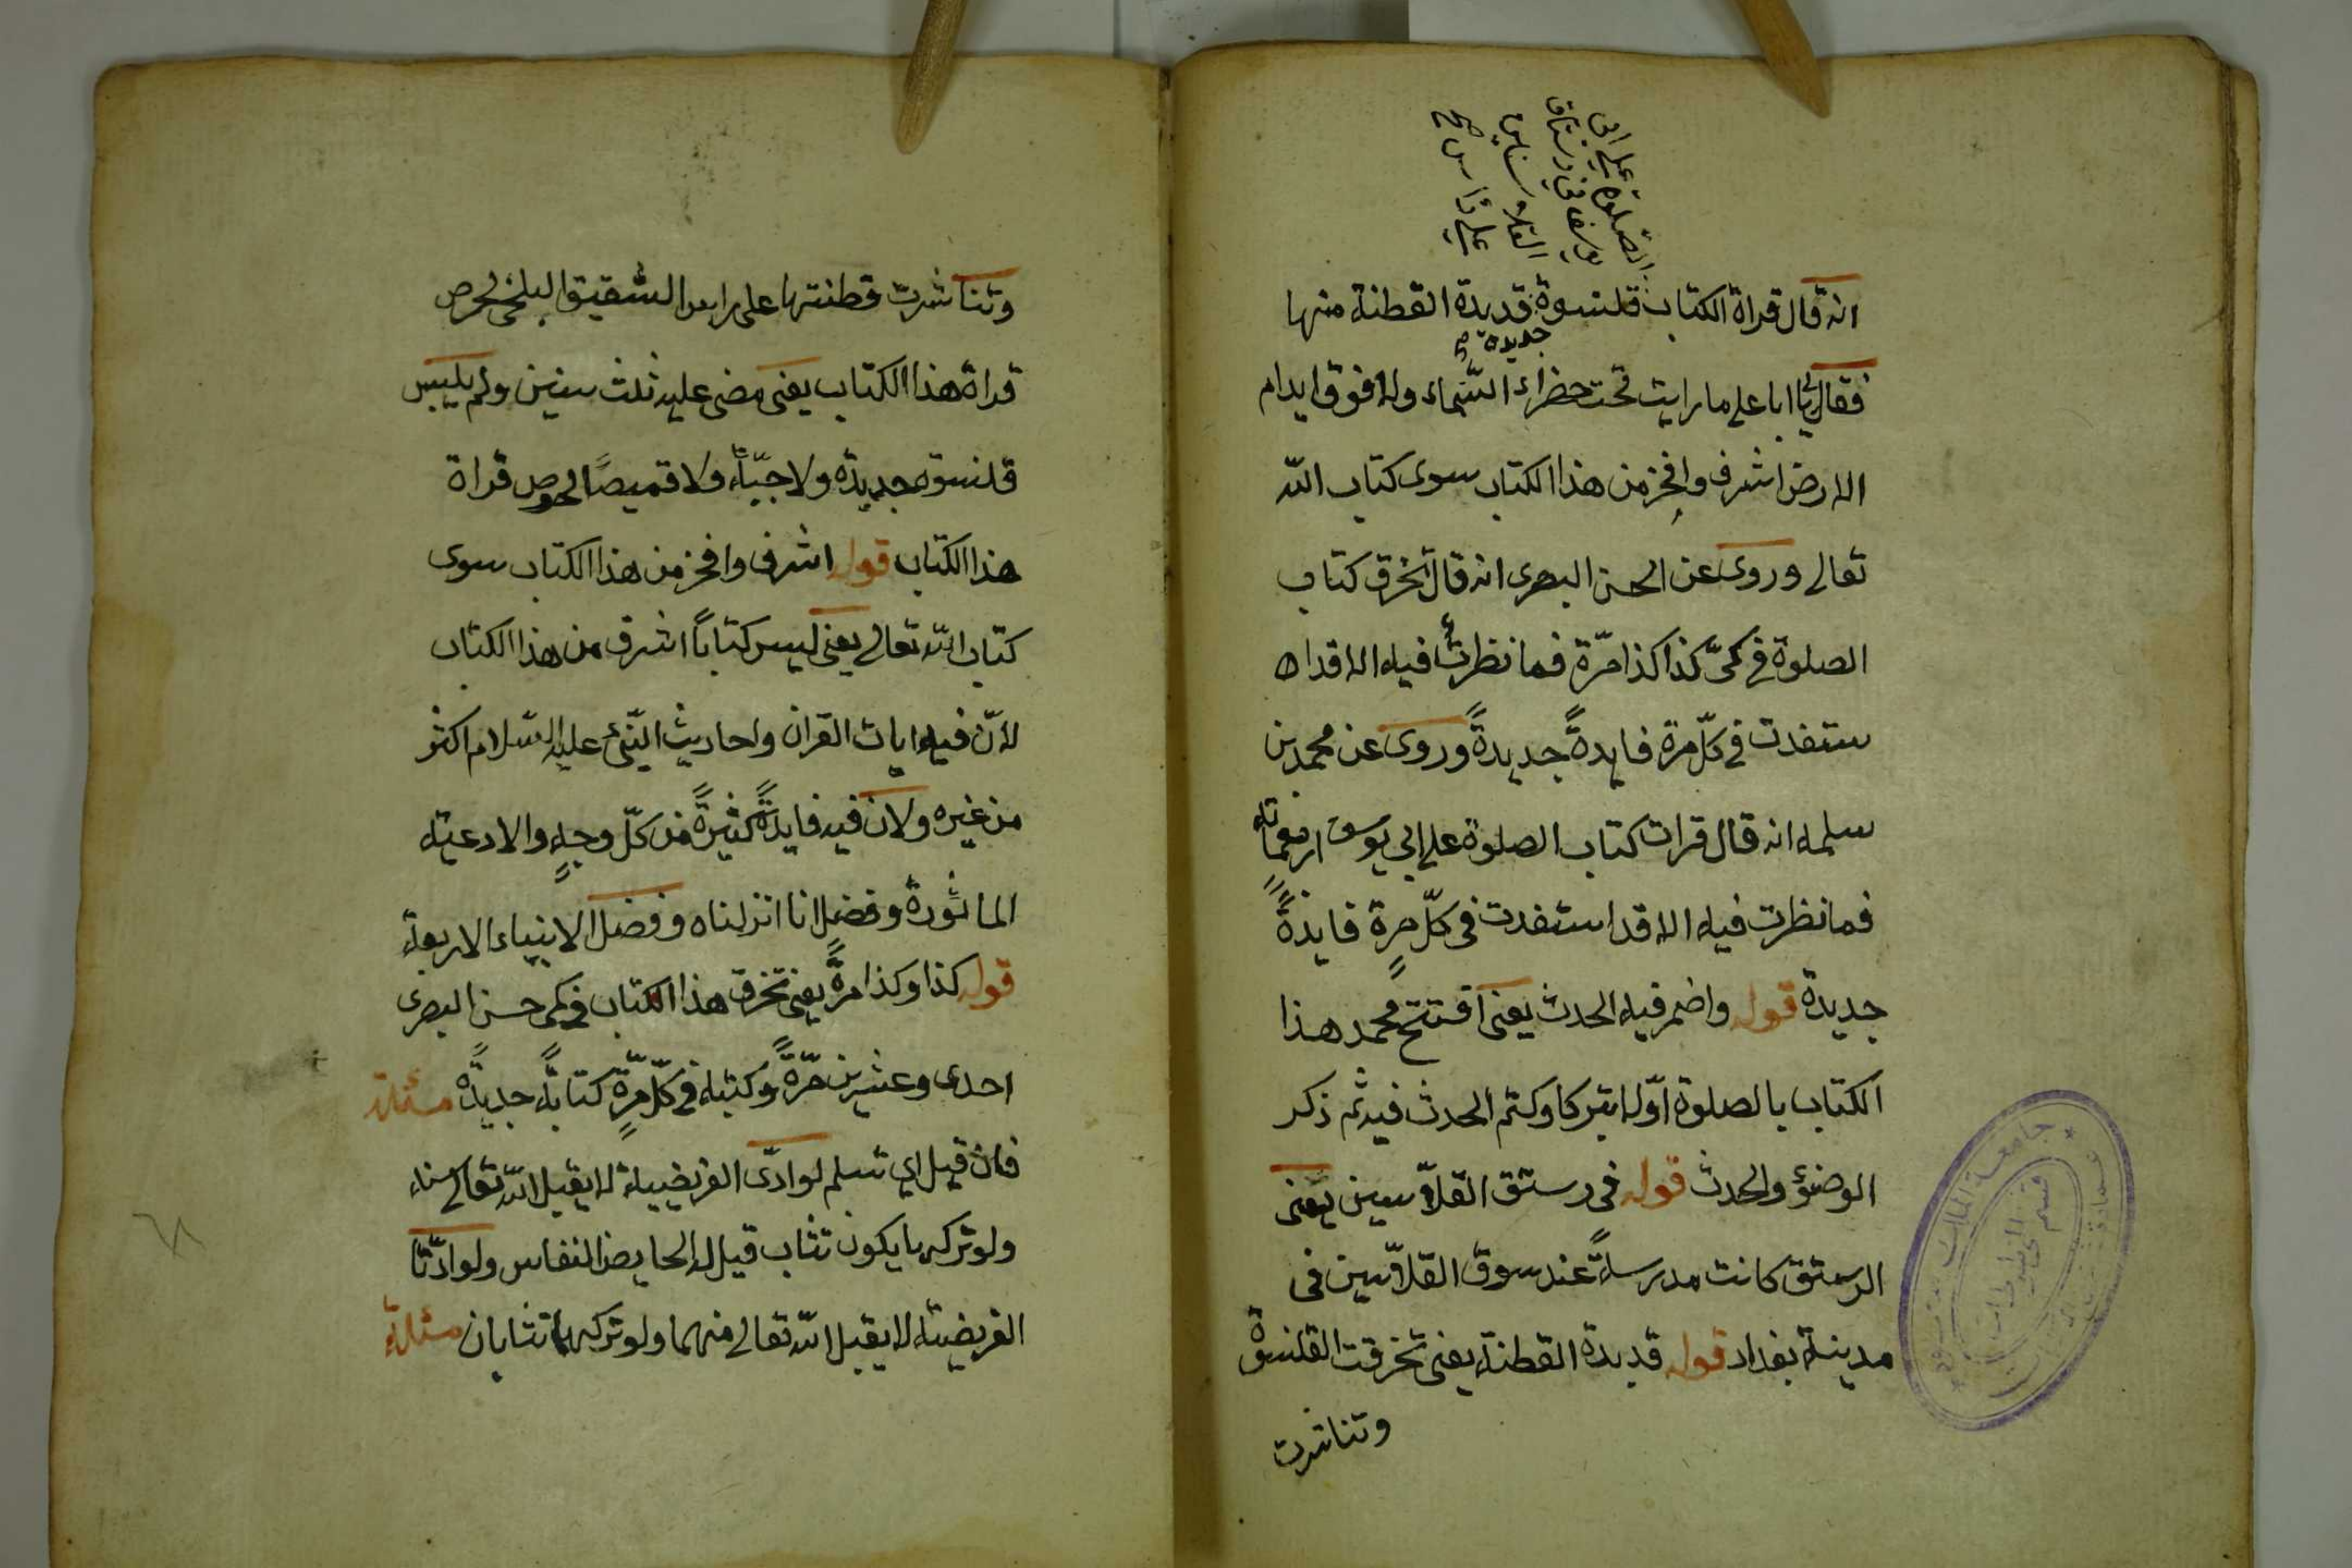 الصلوة على ابى
يوسف فى رستاق
القلاسين
على راس
انه قال قراة الكتاب قلنسوة قديدة القطنة منها
جديدة
فقال لى يا ابا على ما رايت تحت خضراء السّماء ولا فوق ايدام
الارض اشرف وافخر من هذا الكتاب سوى كتاب اللّه
تعالى وروى عن الحسن البصرى انه قال تخرق كتاب
الصلوة فى كمّى كذا كذا مرّة فما نظرتُ فيه الا قد ا
ستفدت فى كلّ مرة فايدةً جديدةً وروى عن محمد بن
سلمه انه قال قرات كتاب الصلوة على ابى يوسف اربعمائة
فما نظرت فيه الا قد استفدت فى كلّ مرةٍ فايدةً
جديدة قوله واضمر فيه الحدث يعنى افتتح محمد هذا
الكتاب بالصلوة اوّلا تبركا وكتم الحدث فيه ثم ذكر
الوضؤ والحدث قوله فى رستق القلاّسين يعنى
الرستق كانت مدرسةً عند سوق القلاّسين فى
مدينة بغداد قوله قديدة القطنة يعنى تخرقت القلنسوة
وتناشرت
وتناشرت قطنتها على راس الشقيق البلخى لحرص
قراة هذا الكتاب يعنى مضى عليه ثلث سنين ولم يلبس
قلنسوة جديدة ولا جبّةً ولا قميصًا لحرص قراة
هذا الكتاب قوله اشرف وافخر من هذا الكتاب سوى
كتاب اللّه تعالى يعنى ليس كتاباً اشرف من هذا الكتاب
لانّ فيه ايات القران واحاديث النّبى عليه السّلام اكثر
من غيره ولان فيه فايدةً كثيرةً من كلّ وجهٍ والادعية
الماثورة وفضل انا انزلناه وفضل الانبياء الاربعة
قوله كذا وكذا مرةً يعنى تخرق هذا الكتاب فى كمى حسن البصرى
احدى وعشرين مرّةً وكتبه فى كلّ مرّةٍ كتابةً جديدةً مسئلة
فان قيل اي مسلم لو ادّى الفريضة لا يقبل اللّه تعالى منه
ولو تركها يكون تثاب قيل له الحايض النفاس ولو ادّتا
الفريضية لا يقبل اللّه تعالى منهما ولو تركها تثابان مسئلة
٦٨
جامعة الملك سعود
قسم المخطوطات